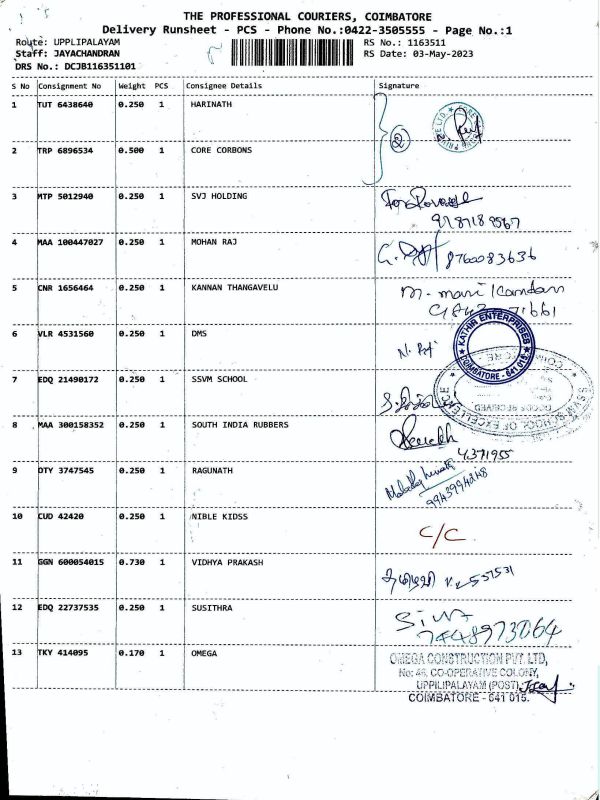 THE PROFESSIONAL COURIERS, COIMBATORE
Delivery Runsheet - PCS - Phone No.:0422-3505555 - Page No.:1
Route: UPPLIPALAYAM RS No.: 1163511
Staff: JAYACHANDRAN RS Date: 03-May-2023
DRS No.: DCJB116351101
S No Consignment No Weight PCS Consignee Details Signature
1 TUT 6438640 0.250 1 HARINATH
2
2 TRP 6896534 0.500 1 CORE CORBONS
3 MTP 5012940 0.250 1 SVJ HOLDING
4 MAA 100447027 0.250 1 MOHAN RAJ
8760083636
5 CNR 1656464 0.250 1 KANNAN THANGAVELU
m. mani Kandan
6 VLR 4531560 0.250 1 DMS
KATHIR ENTERPRISES
COIMBATORE - 641 015.
7 EDQ 21490172 0.250 1 SSVM SCHOOL
SCHOOL OF EXCELLENCE
8 MAA 300158352 0.250 1 SOUTH INDIA RUBBERS
4371955
9 DTY 3747545 0.250 1 RAGUNATH
9943994248
10 CUD 42420 0.250 1 NIBLE KIDSS
C/C
11 GGN 600054015 0.730 1 VIDHYA PRAKASH
12 EDQ 22737535 0.250 1 SUSITHRA
7448973064
13 TKY 414095 0.170 1 OMEGA
OMEGA CONSTRUCTION PVT. LTD,
No: 46, CO-OPERATIVE COLONY,
UPPILIPALAYAM (POST),
COIMBATORE - 641 015.